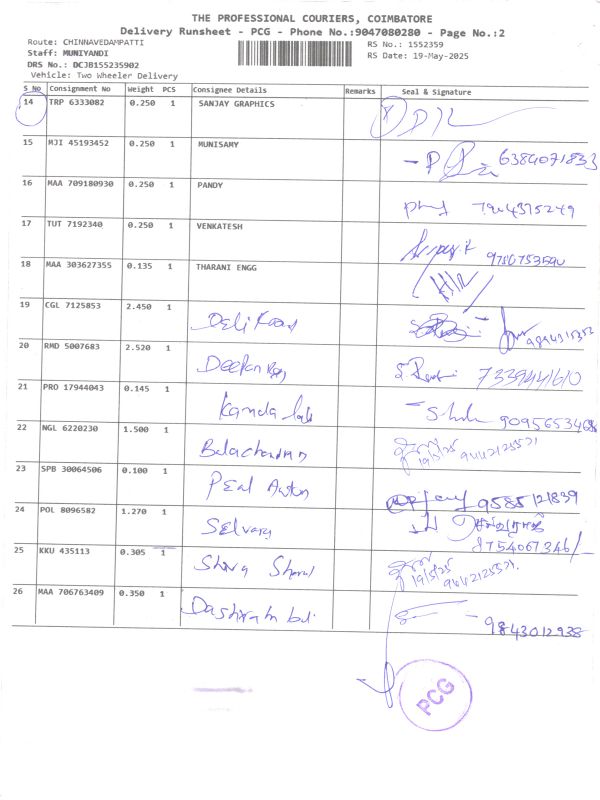 THE PROFESSIONAL COURIERS, COIMBATORE
Delivery Runsheet - PCG - Phone No.:9047080280 - Page No.:2
Route: CHINNAVEDAMPATTI RS No.: 1552359
Staff: MUNIYANDI RS Date: 19-May-2025
DRS No.: DCJB155235902
Vehicle: Two Wheeler Delivery
S No Consignment No Weight PCS Consignee Details Remarks Seal & Signature
14 TRP 6333082 0.250 1 SANJAY GRAPHICS
15 MJI 45193452 0.250 1 MUNISAMY 6384071833
16 MAA 709180930 0.250 1 PANDY
17 TUT 7192340 0.250 1 VENKATESH
18 MAA 303627355 0.135 1 THARANI ENGG
19 CGL 7125853 2.450 1
20 RMD 5007683 2.520 1 7339441610
21 PRO 17944043 0.145 1 9095653468
22 NGL 6220230 1.500 1 Balachandran 19/5/25
23 SPB 30064506 0.100 1 9585121839
24 POL 8096582 1.270 1 Selvaraj
8754067346/-
25 KKU 435113 0.305 1 19/5/25
26 MAA 706763409 0.350 1 9843012938
PCG